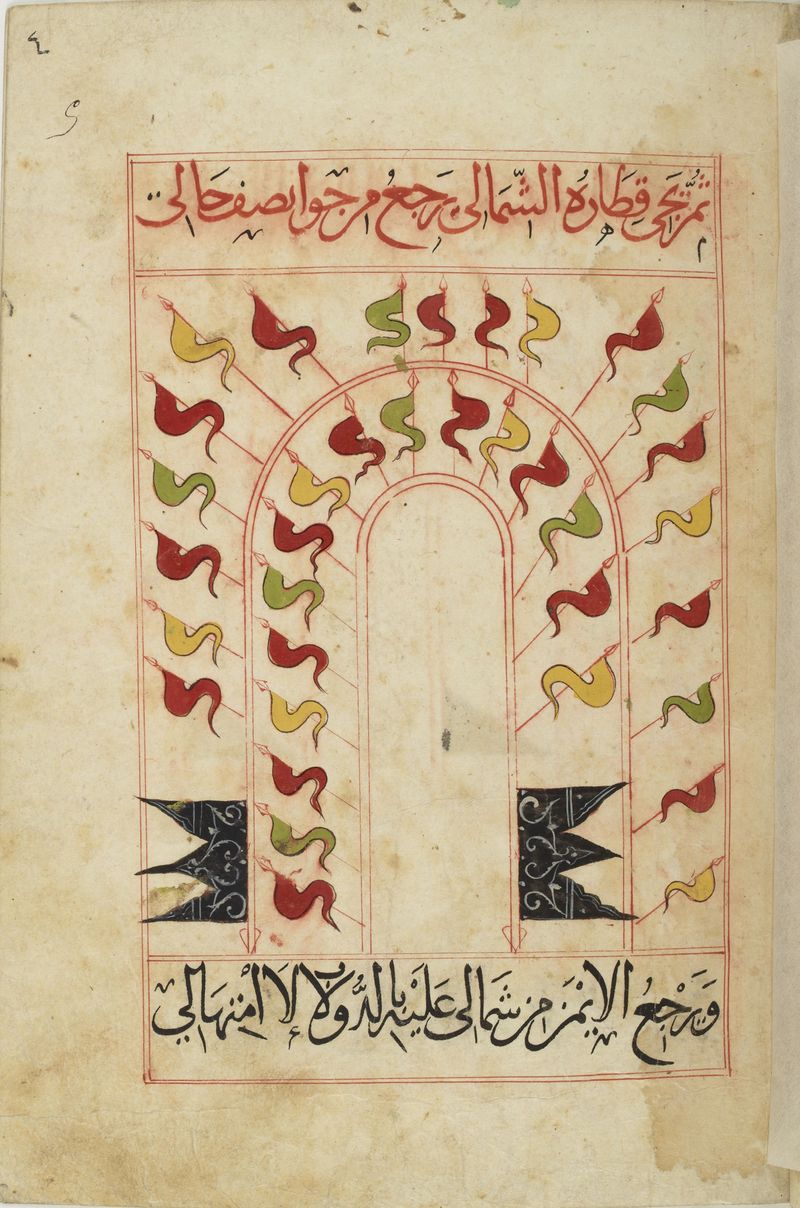 ٤
ثمَّ نجى قِطَارُه الشّمَالى يَرجَعُ من جوا بصف حَالى
وَيَرْجِعُ الايْمَن من شَمَالى عَلَيْه بالدُّولابِ لاَ امْتِهَالي